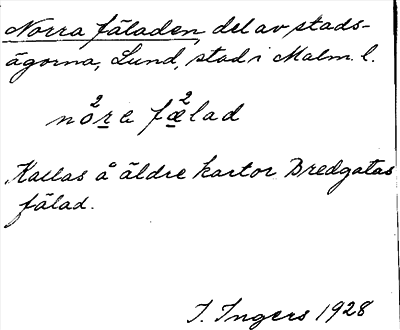 Norra fäladen, del av stads-
ägorna, Lund, stad i Malm. l.
nåra fælad
Kallas å äldre kartor Bredgatas
fälad.
I. Ingers 1928